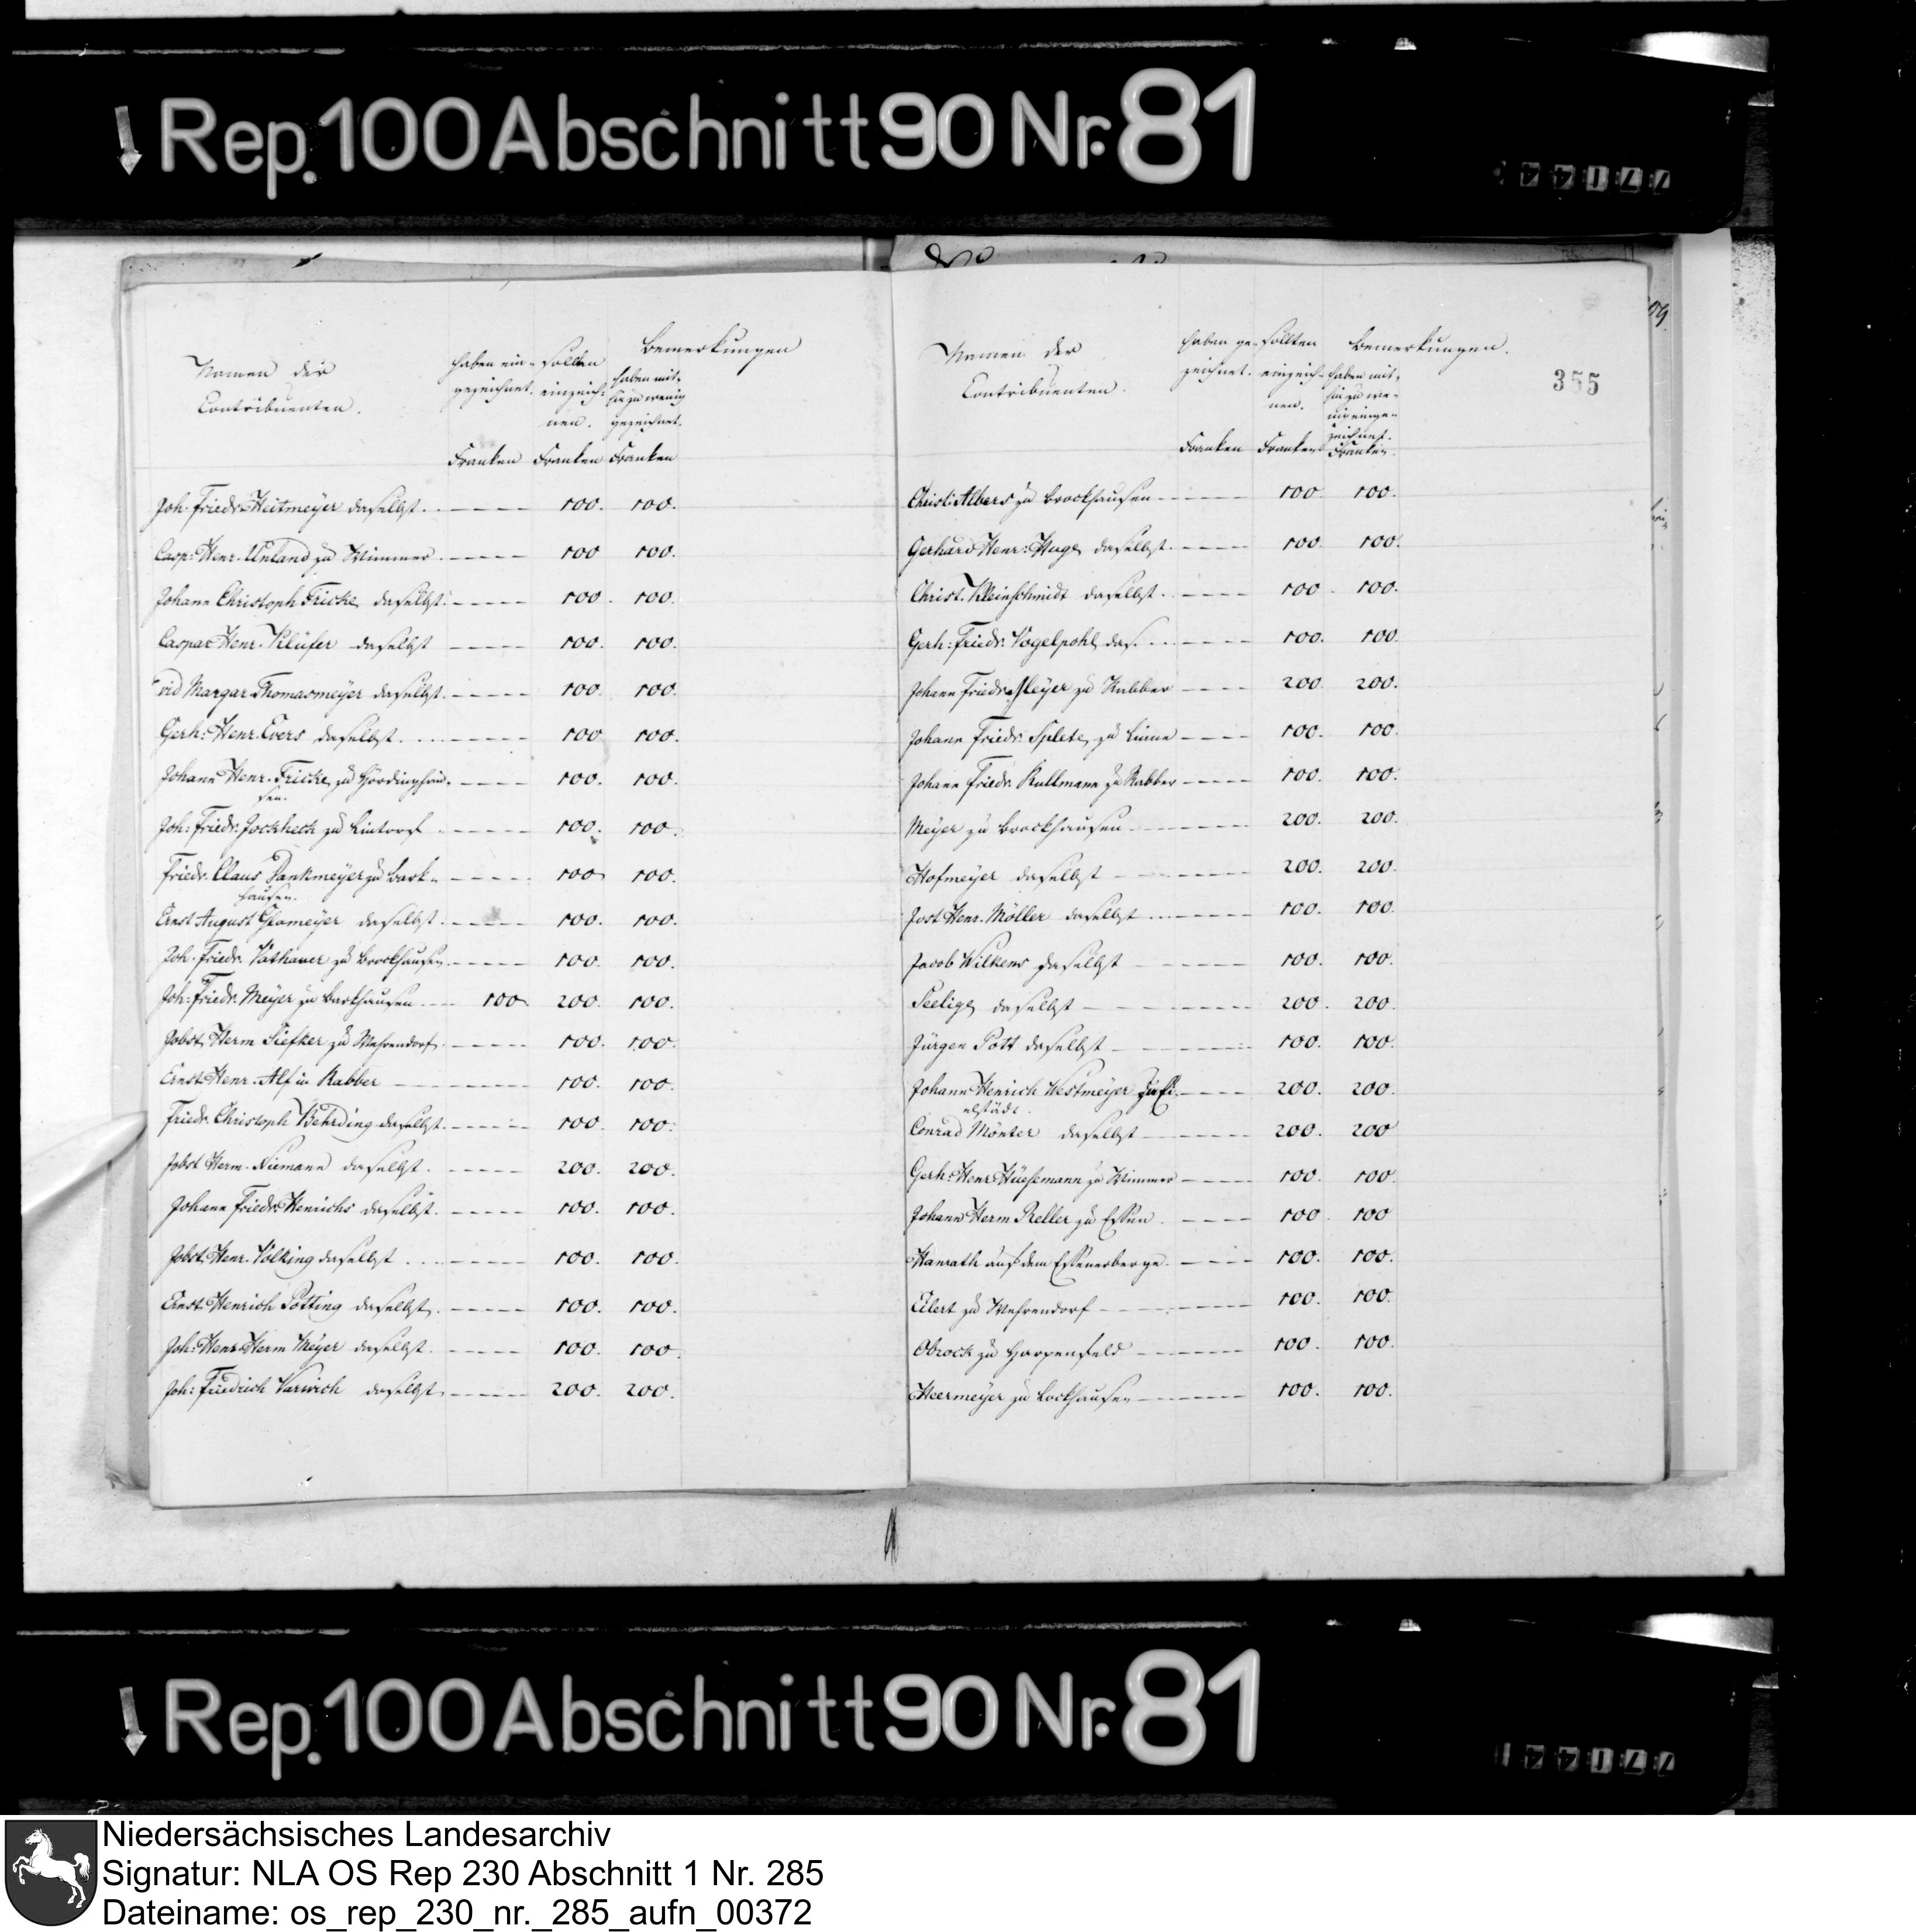 Rep. 100 Abschnitt 90 Nr. 81
Namen der
Contribuenten.
haben ein-
gezeichnet.
Franken
sollen
einzeich-
nen.
Franken
haben mit-
hin zu wenig
gezeichnet.
Franken
Bemerkungen
Joh. Friedr. Heitmeyer daselbst. 100. 100.
Casp: Henr. Unland zu Wimmer. 100 100.
Johann Christoph Fricke daselbst. 100. 100.
Caspar Henr. Klüfer daselbst 100. 100.
vid Margar. Thomasmeyer daselbst. 100. 100.
Gerh: Henr. Evers daselbst. 100 100.
Johann Henr. Fricke zu Hördinghau-
sen. 100. 100.
Joh: Friedr. Jockheck zu Lintorf 100. 100.
Friedr. Claus Dankmeyer zu Bark-
hausen. 100 100.
Ernst August daselbst. 100. 100.
Joh. Friedr. Vathauer zu Brockhausen. 100. 100.
Joh: Friedr. Meyer zu Barkhausen 100. 200. 100.
Jobst Herm Siefker zu Wehrendorf. 100. 100.
Ernst Henr. Alf in Rabber 100. 100.
Friedr. Christoph Behrding daselbst. 100. 100.
Jobst Herm. Niemann daselbst. 200. 200.
Johann Friedr. Henrichs daselbst. 100. 100.
Jobst Henr. Völking daselbst 100. 100.
Ernst Henrich Potting daselbst. 100. 100.
Joh: Henr. Herm Meyer daselbst. 100. 100.
Joh: Friedrich Varwich daselbst 200. 200.
Namen der
Contribuenten.
haben ge-
zeichnet.
Franken
sollten
einzeich-
nen.
Franken
haben mit-
hin zu we-
nig einge-
zeichnet.
Franken.
Bemerkungen.
355
Christ. Albers zu Brockhausen 100. 100.
Gerhard Henr: Huge daselbst. 100. 100.
Christ. Kleinschmidt daselbst. 100. 100.
Gerh: Friedr. Vogelpohl das. 100. 100.
Johann Friedr. Meyer zu Rabber 200. 200.
Johann Friedr. Splete zu Linne 100. 100.
Johann Friedr. Kullmann zu Rabber 100. 100.
Meyer zu Brockhausen 200. 200.
Hofmeyer daselbst 200. 200.
Jost Henr. Möller daselbst 100. 100.
Jacob Wilkens daselbst 100. 100.
Seelige daselbst 200. 200.
Jürgen Pott daselbst 100. 100.
Johann Henrich Westmeyer zu Ei-
elstädt. 200. 200.
Conrad Mönter daselbst 200. 200
Gerh: Henr. Hüesemann zu Wimmer 100. 100.
Johann Herm Reller zu Essen. 100. 100
Hanrath auf dem Essenerberge. 100. 100.
Eilert zu Wehrendorf 100. 100.
Obrock zu Harpenfeld 100. 100.
Heermeyer zu Bockhausen 100. 100.
Rep. 100 Abschnitt 90 Nr. 81
Niedersächsisches Landesarchiv
Signatur: NLA OS Rep 230 Abschnitt 1 Nr. 285
Dateiname: os_rep_230_nr._285_aufn_00372